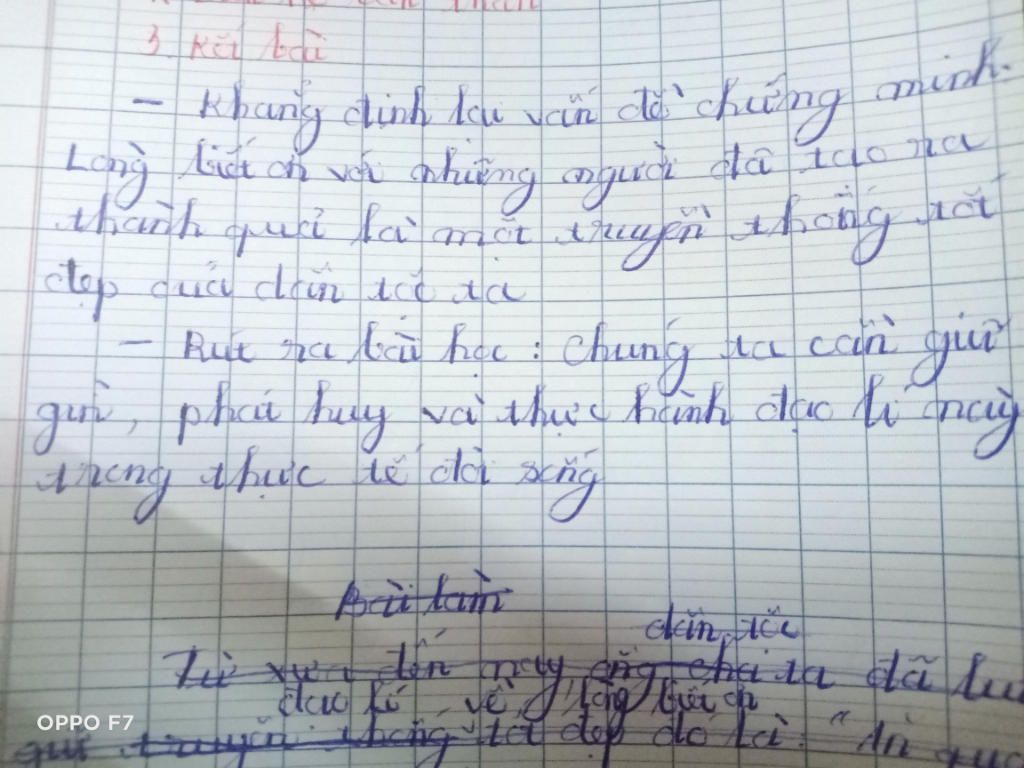 3. Kết bài
- Khẳng định lại vấn đề chứng minh.
Lòng biết ơn với những người đã tạo ra
thành quả là một truyền thống tốt
đẹp của dân tộc ta
- Rút ra bài học: Chúng ta cần giữ
gìn, phát huy và thực hành đạo lí này
trong thực tế đời sống
Bài làm
dân tộc
Từ xưa đến nay ông cha ta đã lưu
đạo lí về lòng biết ơn
truyền thống tốt đẹp đó là: "Ăn quả
OPPO F7